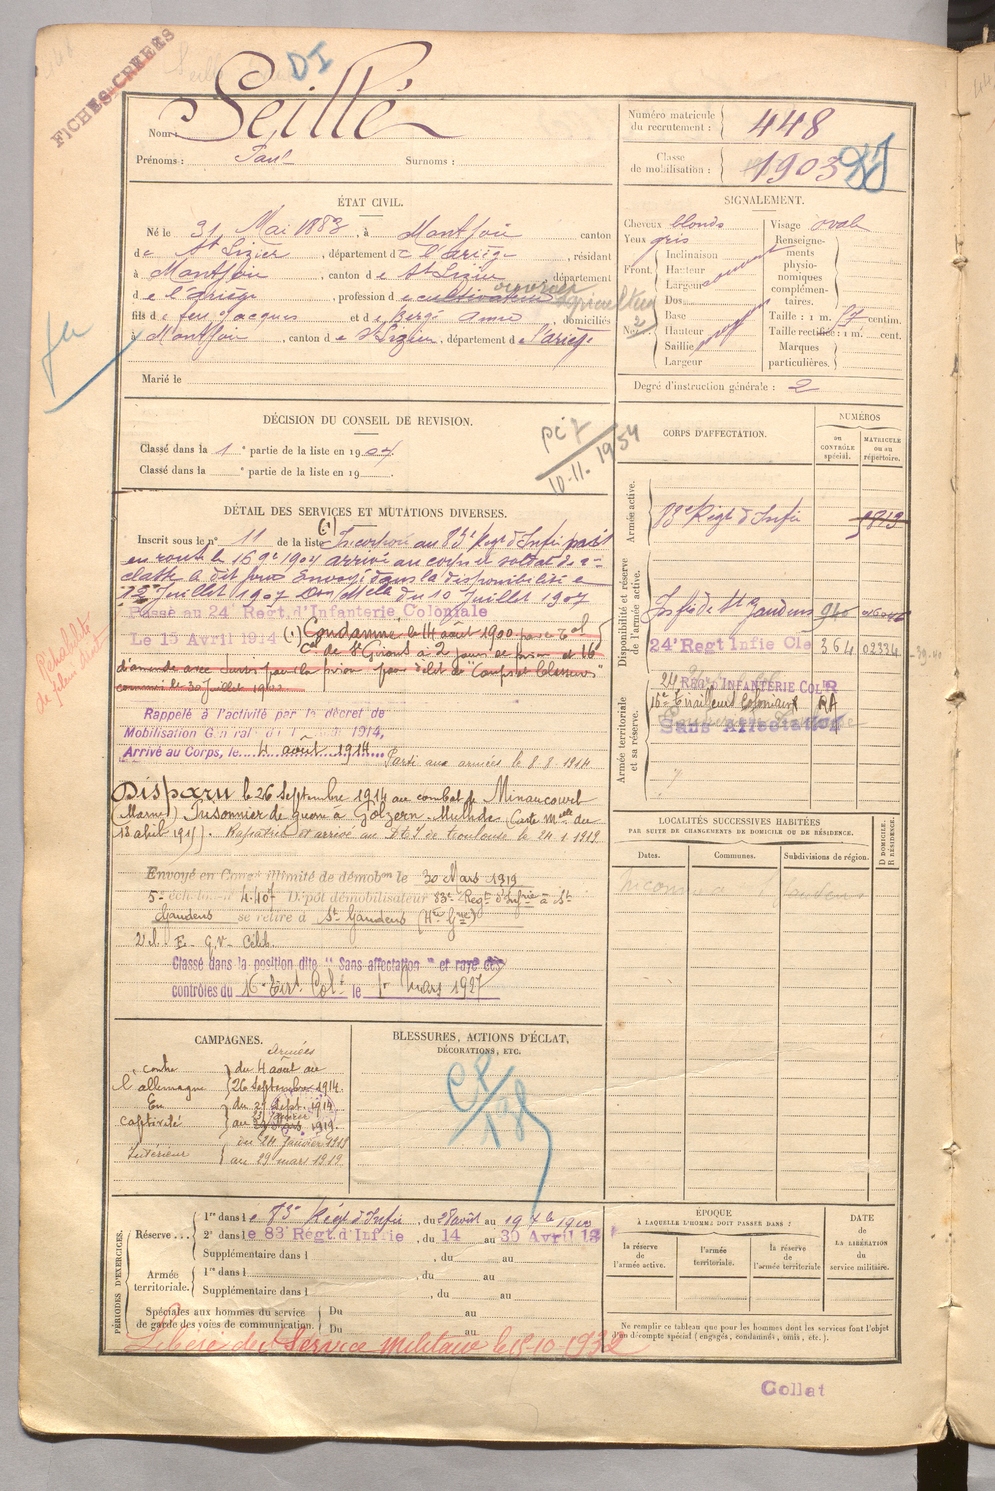 FICHES CREEES
DI
Nom : Seillé
Prénoms : Paul Surnoms :
Numéro matricule du recrutement : 448
Classe de mobilisation : 1903
ÉTAT CIVIL.
Né le 31 Mai 1883, à Montjoie canton
de St Lizier, département de l'ariège, résidant
à Montjoie, canton de St Lizier département
de l'ariège, profession de cultivateur ouvrier agriculteur
fils de feu Jacques et de Bergé Anna domiciliés
à Montjoie, canton de St Lizier, département de l'ariège
Marié le
SIGNALEMENT.
Cheveux blonds
Yeux gris
Front. Inclinaison
Hauteur
Largeur
Nez. Dos
Base
Hauteur
Saillie
Largeur
Visage oval
Renseignements physionomiques complémentaires.
Taille : 1 m. 57 centim.
Taille rectifiée : 1 m. cent.
Marques particulières.
Degré d'instruction générale : 2
DÉCISION DU CONSEIL DE REVISION.
Classé dans la 1e partie de la liste en 1904.
Classé dans la e partie de la liste en 19
10-11.1954
DÉTAIL DES SERVICES ET MUTATIONS DIVERSES.
Inscrit sous le n° 11 de la liste (1) Incorporé au 83e Regt d'Infie
en route le 16 9bre 1904 arrivé au corps et soldat de 2e
classe à dit jour Envoyé dans la disponibilité le
12 Juillet 1907 du 10 Juillet 1907
Passé au 24e Regt. d'Infanterie Coloniale
Le 15 Avril 1914 (1) Condamné le 14 août 1900 par
de St Girons à 2 jours de prison et 16
d'amende avec sursis pour la prison pour délit de "Coups et blessures"
commis le 30 Juillet
Réhabilité de plein droit
Rappelé à l'activité par le décret de
Mobilisation Générale du 1 1914,
Arrivé au Corps, le 4 août 1914 Parti aux armées le 8.8.1914
Disparu le 26 Septembre 1914 au combat de Minaucourt
(Marne) Prisonnier de guerre à Golzern-Mulhde (Carte Melle du
1917). Rapatrié et arrivé au de Toulouse le 24.1.1919.
Envoyé en Congé illimité de démobon le 30 Mars 1919
5e échelon n° 4407 Dépôt démobilisateur 83e Regt d'Infrie à St
Gaudens se retire à St Gaudens (Hte Gne)
Célib.
Classé dans la position dite "Sans affectation" et rayé des
contrôles du 16e Tirl Colx le 1er Mars 1927
CORPS D'AFFECTATION.
NUMÉROS
AU CONTRÔLE spécial.
MATRICULE ou au répertoire.
Armée active.
83e Régt d'Infie
Disponibilité et réserve de l'armée active.
Infie de St Gaudens 940
24e Regt Infie Cle 364 02334
Armée territoriale et sa réserve.
24 Regt INFANTERIE COLeR
16e Tirailleurs Coloniaux RA
Sans Affectation
LOCALITÉS SUCCESSIVES HABITÉES
PAR SUITE DE CHANGEMENTS DE DOMICILE OU DE RÉSIDENCE.
D DOMICILE. R RÉSIDENCE.
Dates. Communes. Subdivisions de région.
CAMPAGNES.
Armées
contre l'allemagne du 4 août au
26 Septembre 1914.
En captivité du 27 Sept. 1914
au 23 Janvier 1919.
Intérieur du 24 Janvier 1919
au 29 mars 1919
BLESSURES, ACTIONS D'ÉCLAT,
DÉCORATIONS, ETC.
PÉRIODES D'EXERCICES.
Réserve... 1re dans le 83e Régt d'Infie, du 28 août au 19 7bre 1910
2e dans le 83e Régt. d'Inftie, du 14 au 30 Avril 191
Supplémentaire dans l , du au
Armée territoriale. 1re dans l , du au
Supplémentaire dans l , du au
Spéciales aux hommes du service de garde des voies de communication. Du au
Du au
Libéré du Service militaire le 15-10-1932
ÉPOQUE
À LAQUELLE L'HOMME DOIT PASSER DANS :
la réserve de l'armée active.
l'armée territoriale.
la réserve de l'armée territoriale
DATE DE LA LIBÉRATION du service militaire.
Ne remplir ce tableau que pour les hommes dont les services font l'objet
d'un décompte spécial (engagés, condamnés, omis, etc.).
Collat